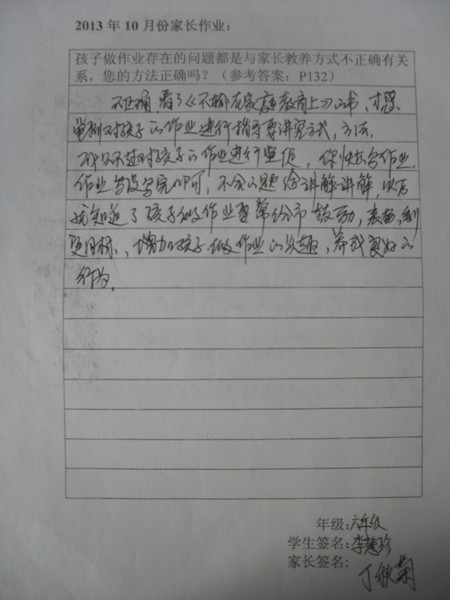 2013 年 10 月份家长作业：
孩子做作业存在的问题都是与家长教养方式不正确有关
系，您的方法正确吗？（参考答案：P132）
不正确，看了《不输在家庭教育上》的书，才
对孩子的作业进行指导要讲究方式，方法
对孩子的作业进行，你快去写作业，
作业写没写完即可，不会的题给讲解讲解，以后
我知道了孩子做作业要常给予鼓励，表扬，制
定目标，增加孩子做作业的兴趣，养成良好的
行为。
年级：六年级
学生签名：李慧珍
家长签名：丁秋菊